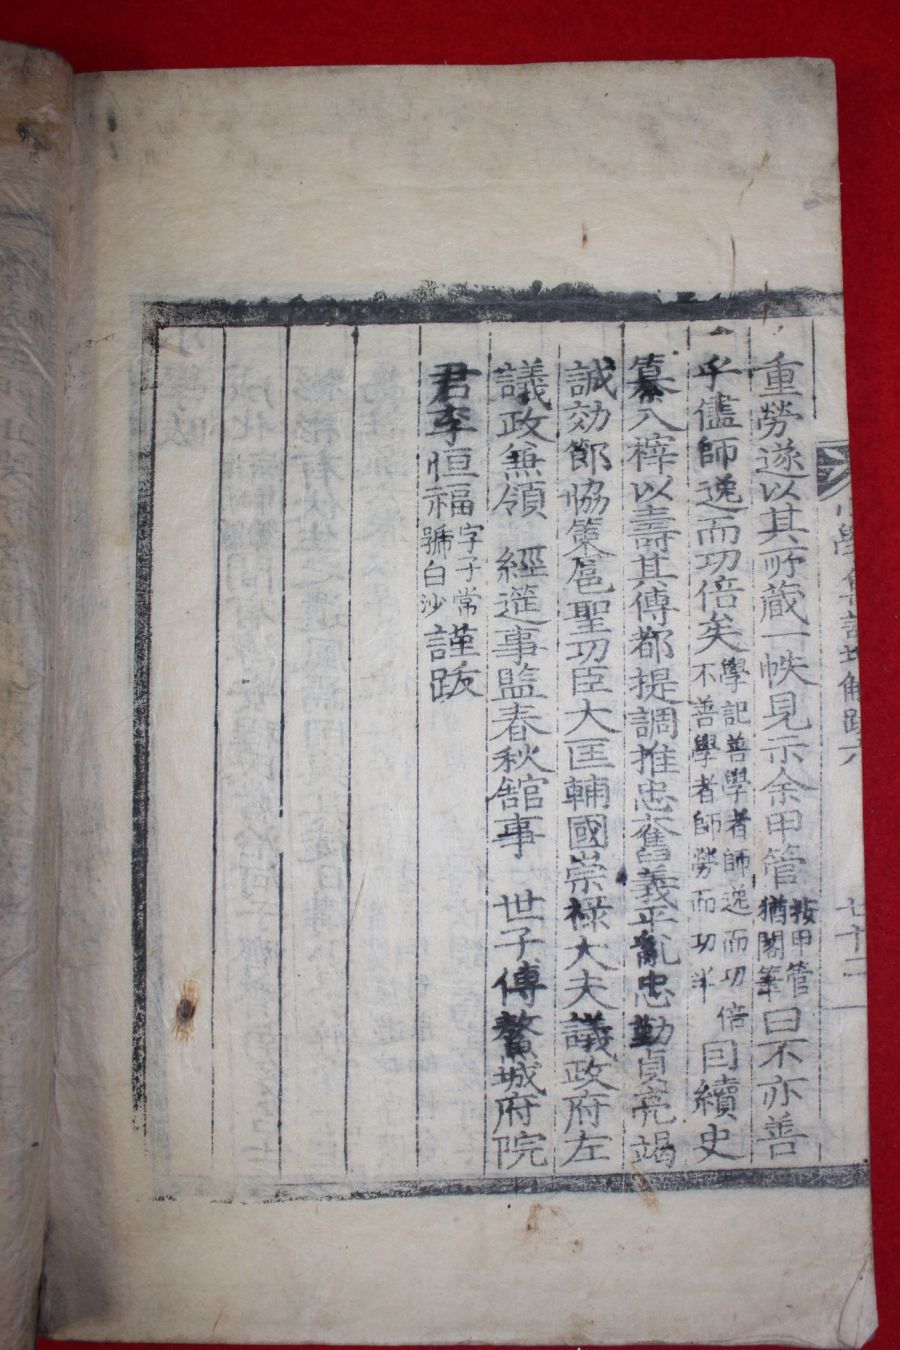 重勞遂以其所蔵一帙見示余甲管按甲管猶閣筆曰不亦善
乎儘師逸而功倍矣學記善學者師逸而功倍不善學者師勞而功半因續史
纂入梓以壽其傳都提調推忠奮義平亂忠勤貞亮竭
誠効節恊策扈聖功臣大匡輔國崇祿大夫議政府左
議政兼領 經筵事監春秋館事 世子傅鰲城府院
君李恒福字子常號白沙謹跋